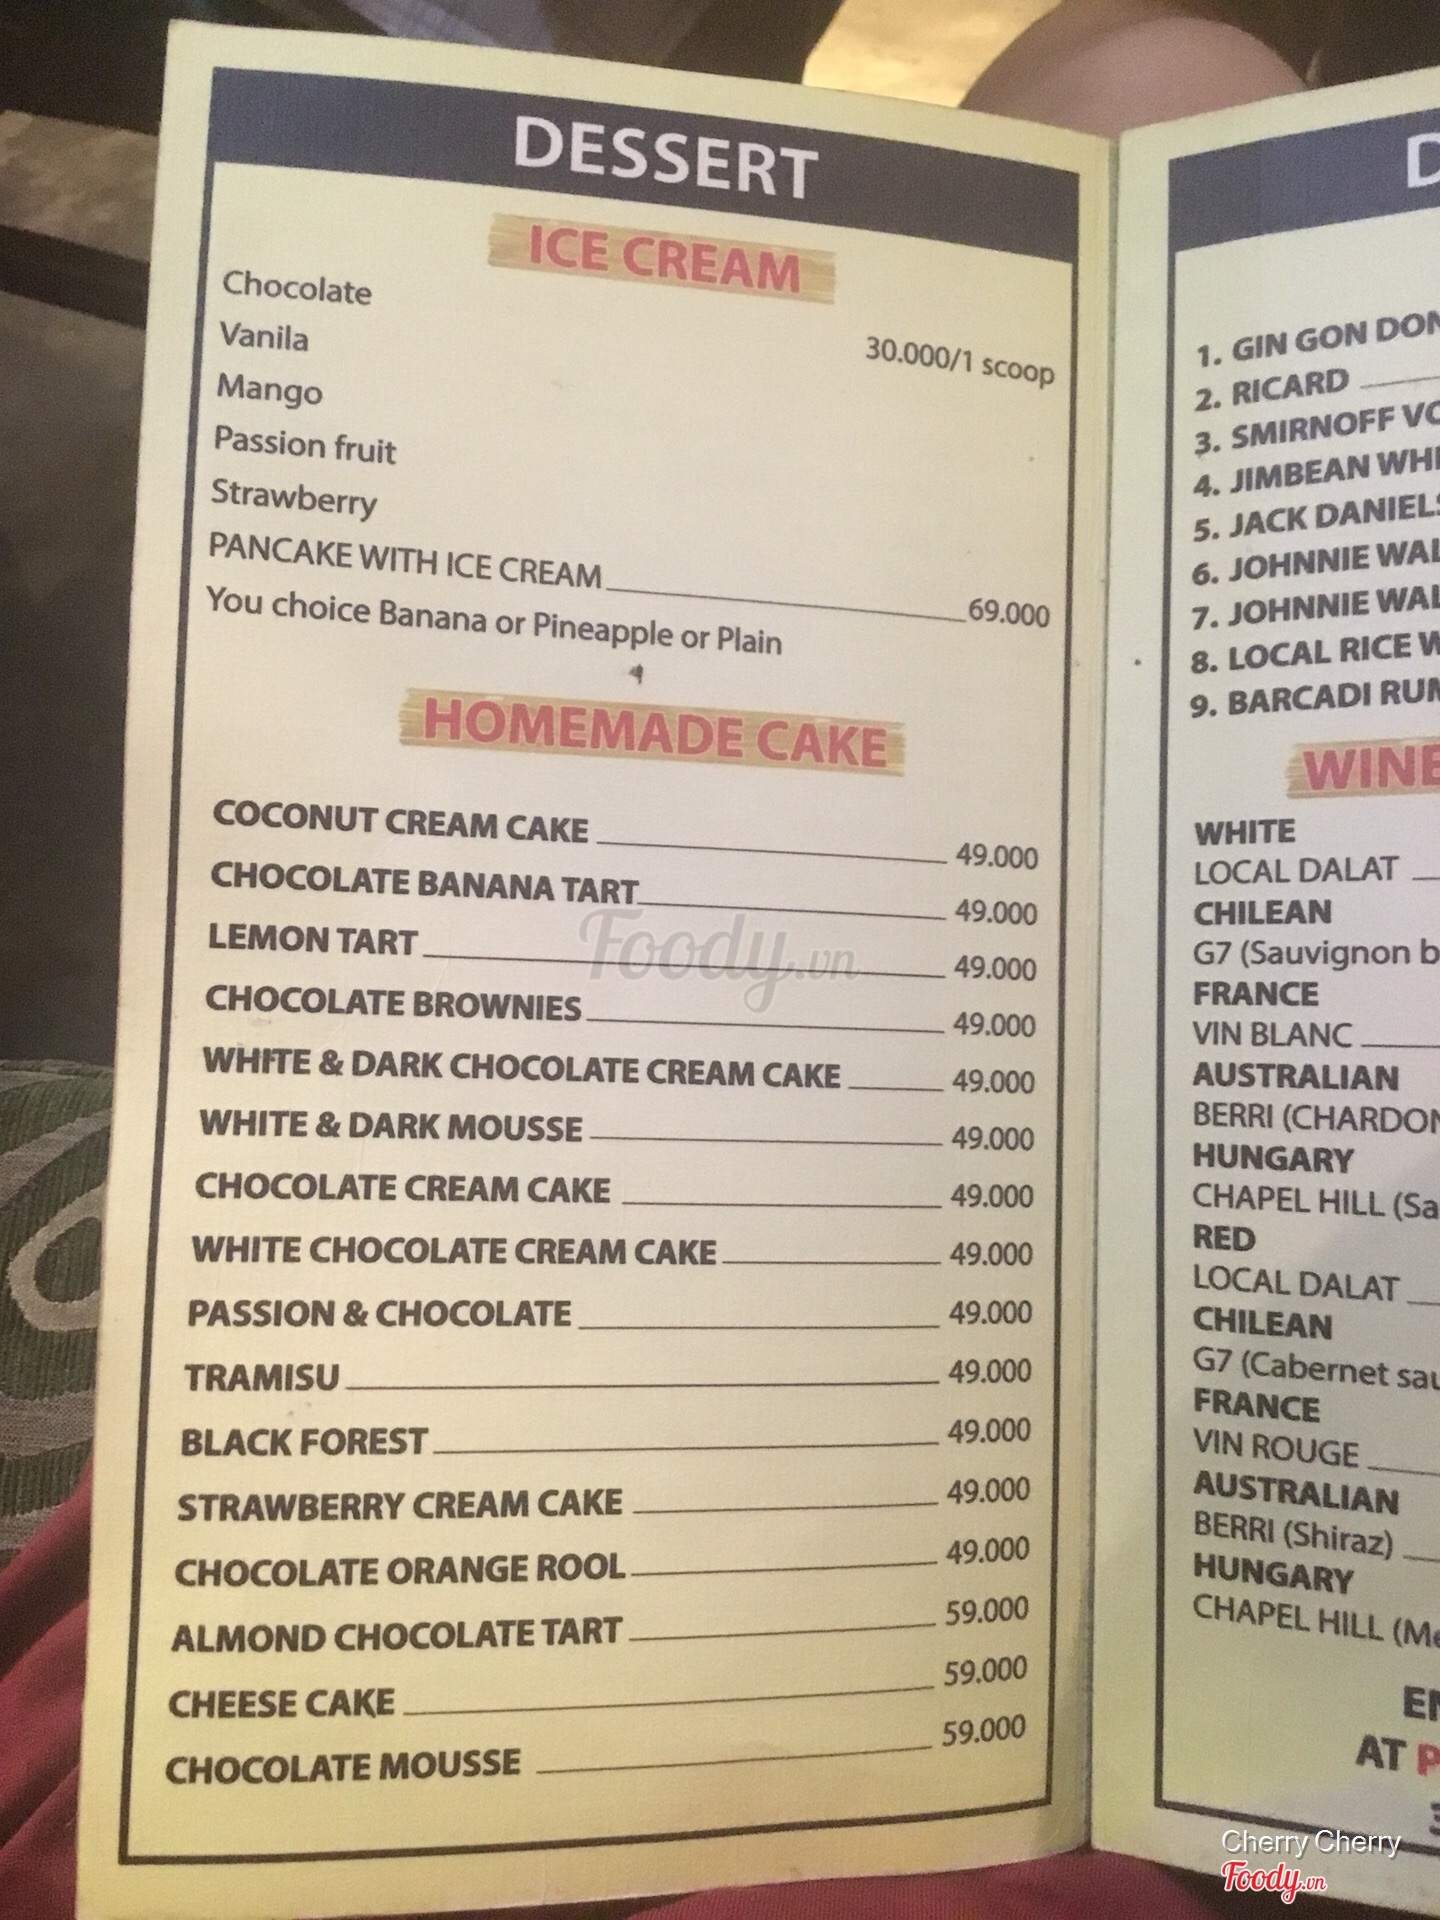 DESSERT
ICE CREAM
Chocolate
Vanila
30.000/1 scoop
Mango
Passion fruit
Strawberry
PANCAKE WITH ICE CREAM 69.000
You choice Banana or Pineapple or Plain
HOMEMADE CAKE
COCONUT CREAM CAKE 49.000
CHOCOLATE BANANA TART 49.000
LEMON TART 49.000
CHOCOLATE BROWNIES 49.000
WHITE & DARK CHOCOLATE CREAM CAKE 49.000
WHITE & DARK MOUSSE 49.000
CHOCOLATE CREAM CAKE 49.000
WHITE CHOCOLATE CREAM CAKE 49.000
PASSION & CHOCOLATE 49.000
TRAMISU 49.000
BLACK FOREST 49.000
STRAWBERRY CREAM CAKE 49.000
CHOCOLATE ORANGE ROOL 49.000
ALMOND CHOCOLATE TART 59.000
CHEESE CAKE 59.000
CHOCOLATE MOUSSE 59.000
Foody.vn
D
1. GIN GON DON
2. RICARD
3. SMIRNOFF VO
4. JIMBEAN WHI
5. JACK DANIELS
6. JOHNNIE WAL
7. JOHNNIE WAL
8. LOCAL RICE W
9. BARCADI RUM
WINE
WHITE
LOCAL DALAT
CHILEAN
G7 (Sauvignon b
FRANCE
VIN BLANC
AUSTRALIAN
BERRI (CHARDON
HUNGARY
CHAPEL HILL (Sa
RED
LOCAL DALAT
CHILEAN
G7 (Cabernet sau
FRANCE
VIN ROUGE
AUSTRALIAN
BERRI (Shiraz)
HUNGARY
CHAPEL HILL (Me
EN
AT P
3
Cherry Cherry
Foody.vn